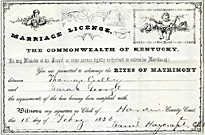 MARRIAGE LICENSE,
THE COMMONWEALTH OF KENTUCKY,
To any Minister of the Gospel or other person legally authorized to solemnize Matrimony:
You are permitted to solemnize the RITES OF MATRIMONY
between Thomas
and Sarah
the requirements of the law having been complied with.
Witness my signature as Clerk of Hardin County Court,
this 15 day of Feby
Samuel Haycraft